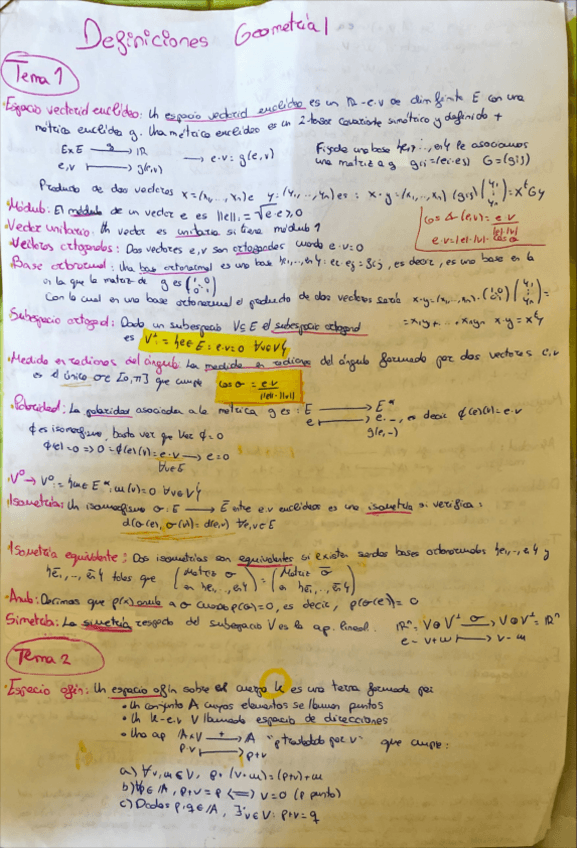 Definiciones Geometría I
Tema 1
Espacio vectorial euclídeo: Un espacio vectorial euclídeo es un ℝ-e.v de dim finita E con una
métrica euclídea g. Una métrica euclídea es un 2-tensor covariante simétrico y definido +
E×E —g→ ℝ
e,v ↦ g(e,v) → e·v = g(e,v)
Fijada una base {e₁,...,en} le asociamos
una matriz a g gij=(ei·ej) G=(gij)
Producto de dos vectores x=(x₁,...,xn) e y=(y₁,...,yn) es: x·y=(x₁,...,xn)(gij)(y₁ ⋮ yn)=xᵗGy
Módulo: El módulo de un vector e es ||e||=√e·e ≥0
cos ∡(e,v) = e·v / |e||v|
e·v=|e|·|v|·cos α
Vector unitario: Un vector es unitario si tiene módulo 1
Vectores ortogonales: Dos vectores e,v son ortogonales cuando e·v=0
Base ortonormal: Una base ortonormal es una base {e₁,...,en}: ei·ej=δij, es decir, es una base en la
en la que la matriz de g es (1 0 0 1)
Con lo cual en una base ortonormal el producto de dos vectores será x·y=(x₁,...,xn)·(1 0 0 1)(y₁ ⋮ yn)=
= x₁y₁+...+xnyn x·y=xᵗy
Subespacio ortogonal: Dado un subespacio V⊆E el subespacio ortogonal
es V⊥:={e∈E : e·v=0 ∀v∈V}
Medida en radianes del ángulo: La medida en radianes del ángulo formado por dos vectores e,v
es el único σ∈[0,π] que cumple cos σ = e·v / ||e||·||v||
Polaridad: La polaridad asociada a la métrica g es: E → E*
e ↦ e·_ , es decir ϕ(e)(v)=e·v
g(e,-)
ϕ es isomorfismo, basta ver que Ker ϕ=0
ϕ(e)=0 => 0=ϕ(e)(v)=e·v → e=0
∀v∈E
V⁰ → V⁰:={w∈E*: w(v)=0 ∀v∈V}
Isometría: Un isomorfismo σ: E → Ē entre e.v euclídeos es una isometría si verifica:
d(σ(e),σ(v))=d(e,v) ∀e,v∈E
Isometría equivalente: Dos isometrías son equivalentes si existen sendas bases ortonormales {e₁,...,en} y
{ē₁,...,ēn} tales que (Matriz σ en {e₁,...,en}) = (Matriz σ̄ en {ē₁,...,ēn})
Anula: Decimos que p(x) anula a σ cuando p(σ)=0, es decir, p(σ(e))=0
Simetría: La simetría respecto del subespacio V es la ap. lineal. ℝⁿ=V⊕V⊥ —σ→ V⊕V⊥=ℝⁿ
e = v+w ↦ v-w
Tema 2
Espacio afín: Un espacio afín sobre el cuerpo k es una terna formada por:
• Un conjunto A cuyos elementos se llaman puntos
• Un k-e.v V llamado espacio de direcciones
• Una ap A×V —+→ A "p trasladado por v" que cumple:
p,v ↦ p+v
a) ∀v,w∈V, p+(v+w)=(p+v)+w
b) ∀p∈A, p+v=p <=> v=0 (p punto)
c) Dados p,q∈A, ∃!v∈V: p+v=q